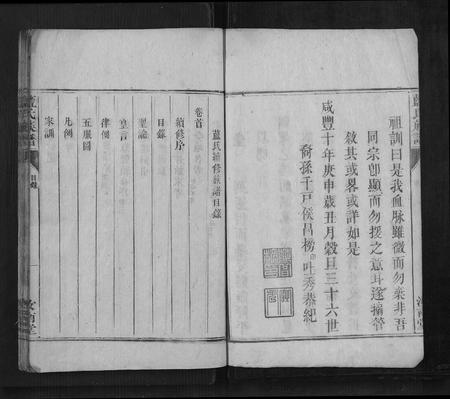 祖訓曰是我血脉雖微而勿棄非吾
同宗卽顯而勿援之意耳遂搦管
敘其或畧或詳如是
咸豐十年庚申歲丑月穀旦三十六世
裔孫千戸侯昌榜吐秀恭紀
藍氏續修族譜目錄
卷首
續修序
目錄
聖諭
律例
五服圖
凡例
家訓
藍氏族譜
目錄
汝南堂